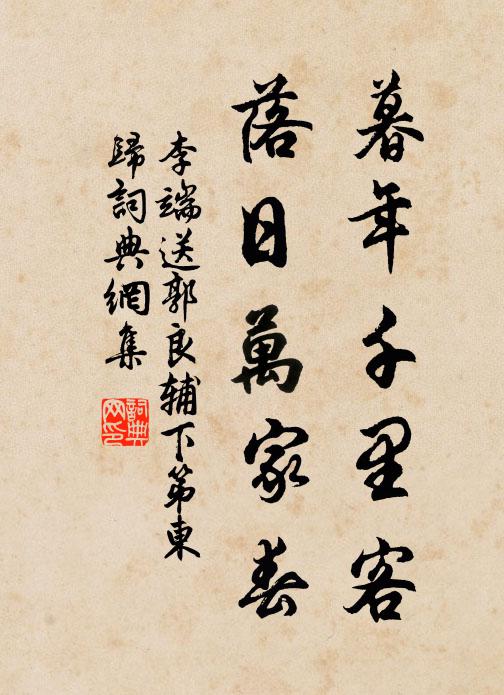 暮年千里客
落日萬家春
李端送郭良辅下第東
歸詞典網集
詞典
网印